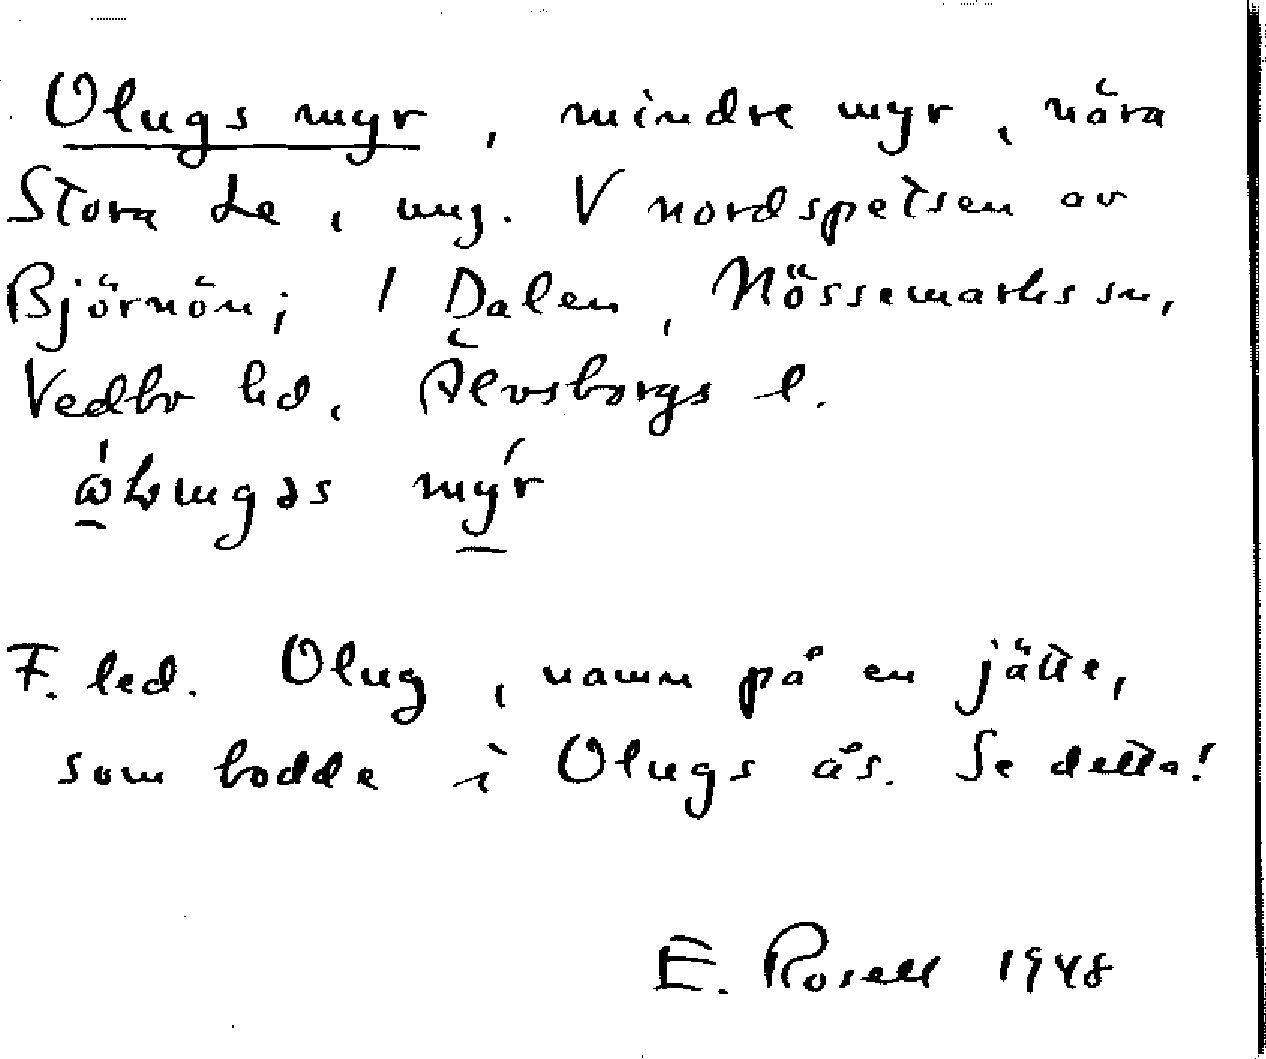 Olugs myr, mindre myr, nära
Stora Le, ung. V nordspetsen av
Björnön; I Dalen, Nössemarks sn,
Vedbo hd, Älvsborgs l.
myr
F. led. Olug, namn på en jätte,
som bodde i Olugs ås. Se detta!
E. Rosell 1948